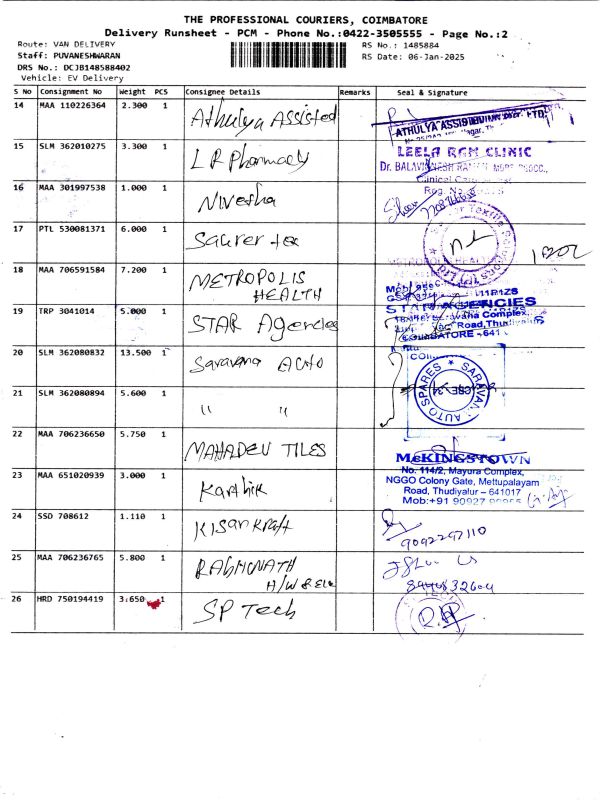 THE PROFESSIONAL COURIERS, COIMBATORE
Delivery Runsheet - PCM - Phone No.:0422-3505555 - Page No.:2
Route: VAN DELIVERY RS No.: 1485884
Staff: PUVANESHWARAN RS Date: 06-Jan-2025
DRS No.: DCJB148588402
Vehicle: EV Delivery
S No Consignment No Weight PCS Consignee Details Remarks Seal & Signature
14 MAA 110226364 2.300 1 Athulya Assisted
ATHULYA ASSISTED LIVING PVT. LTD.
15 SLM 362010275 3.300 1 L R Pharmacy
LEELA RGM CLINIC
16 MAA 301997538 1.000 1 Nivetha
17 PTL 530081371 6.000 1 Saurer tex
18 MAA 706591584 7.200 1 METROPOLIS
HEALTH
19 TRP 3041014 5.000 1 STAR Agencies
STAR AGENCIES
Road, Thudiyalur
COIMBATORE - 641
20 SLM 362080832 13.500 1 Saravana Auto
21 SLM 362080894 5.600 1 " "
SARAVANA AUTO SPARES
CBE-34
22 MAA 706236650 5.750 1 MAHADEV TILES
McKINGSTOWN
No. 114/2, Mayura Complex,
NGGO Colony Gate, Mettupalayam
Road, Thudiyalur – 641017
Mob:+91 90927
23 MAA 651020939 3.000 1 Karthik
24 SSD 708612 1.110 1 Kisankraft
9092297110
25 MAA 706236765 5.800 1 RAGHUNATH
H/W & Ele
8940832604
26 HRD 750194419 3.650 1 SP Tech